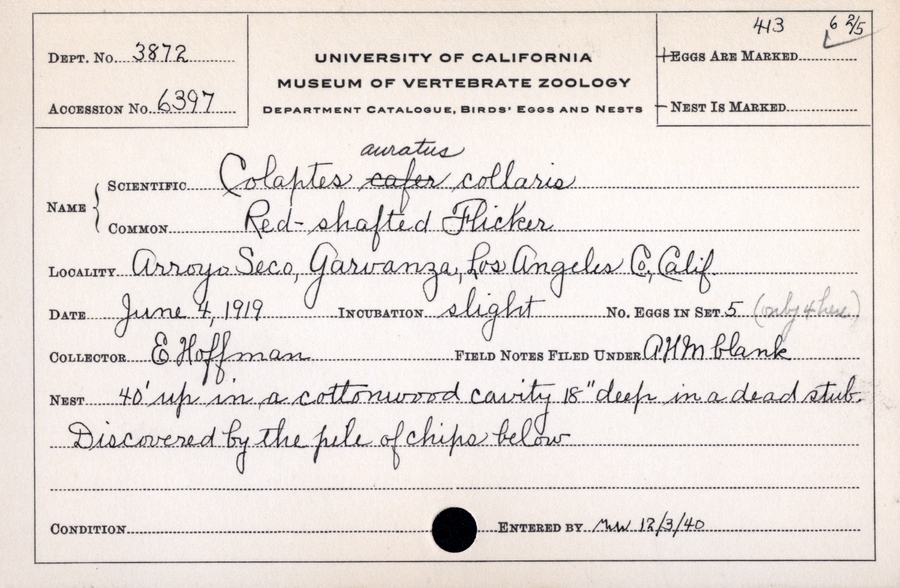 413 6 2/5
DEPT. NO. 3872
UNIVERSITY OF CALIFORNIA
EGGS ARE MARKED
MUSEUM OF VERTEBRATE ZOOLOGY
ACCESSION NO. 6397
DEPARTMENT CATALOGUE, BIRDS' EGGS AND NESTS
NEST IS MARKED
auratus
NAME { SCIENTIFIC Colaptes cafer collaris
COMMON Red-shafted Flicker
LOCALITY Arroyo Seco, Garvanza, Los Angeles Co, Calif.
DATE June 4, 1919 INCUBATION slight NO. EGGS IN SET 5 (only 4 here)
COLLECTOR E Hoffman FIELD NOTES FILED UNDER AHM blank
NEST 40' up in a cottonwood cavity 18" deep in a dead stub.
Discovered by the pile of chips below
CONDITION ENTERED BY MW 12/3/40